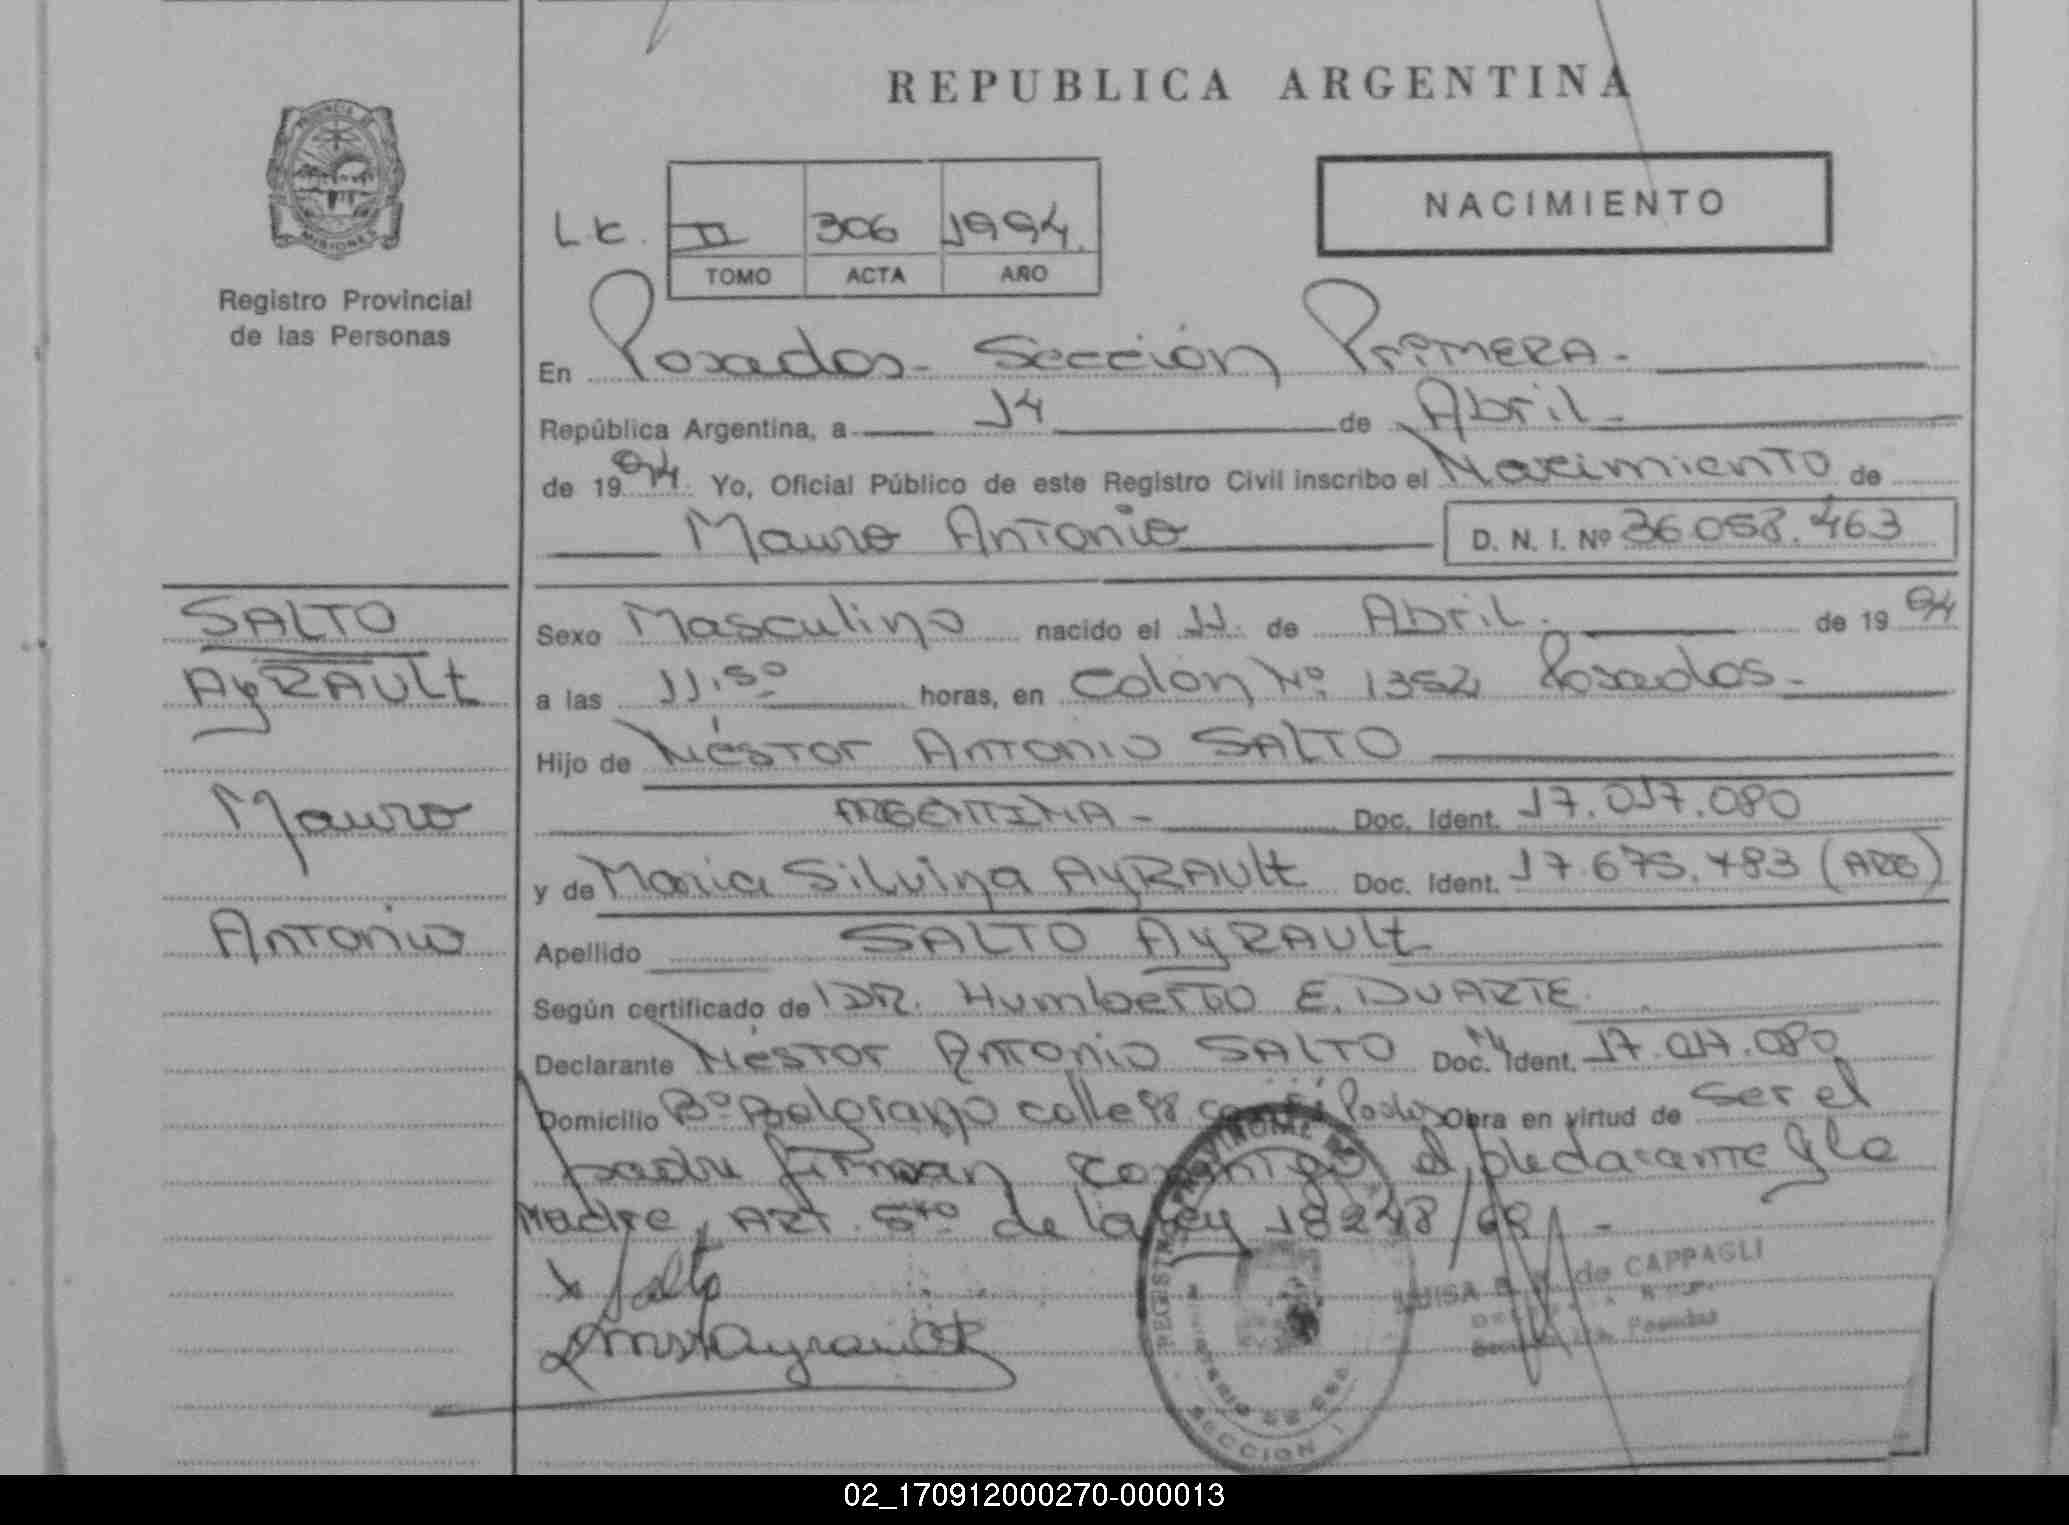 PROVINCIA DE
MISIONES
Registro Provincial
de las Personas
REPUBLICA ARGENTINA
NACIMIENTO
II 306 1994.
TOMO ACTA AÑO
En Posadas - Sección PRIMERA -
República Argentina, a 14 de Abril -
de 19 94. Yo, Oficial Público de este Registro Civil inscribo el Nacimiento de
Mauro Antonio D. N. I. Nº 36.058.463
SALTO
AyRAULt
Mauro
Antonio
Sexo Masculino nacido el 11. de Abril. de 19 94
a las 11.50 horas, en Colón Nº 1352 Posadas -
Hijo de Néstor Antonio SALTO
ARGENTINA - Doc. Ident. 17.017.080
y de Maria Silvina AyRAULt Doc. Ident. 17.675.483 (ARG)
Apellido SALTO AyRAULt
Según certificado de DR. Humberto E. DUARTE.
Declarante Néstor Antonio SALTO Doc. Ident. 17.017.080
Domicilio Bº Belgrano calle 98 Obra en virtud de ser el
padre firman conmigo el declarante y la
Madre, ART. 5to de la ley 18248/69 -
Salto
LUISA de CAPPAGLI
Posadas
SECCION 1
02_170912000270-000013